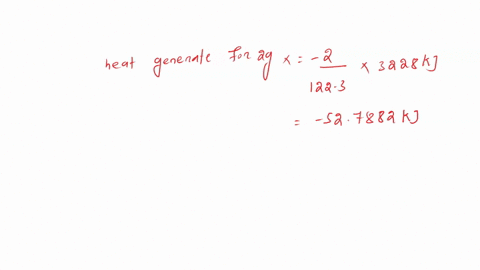 heat generate for 2g x = -2/122.3 × 3228 KJ
= -52.7882 KJ